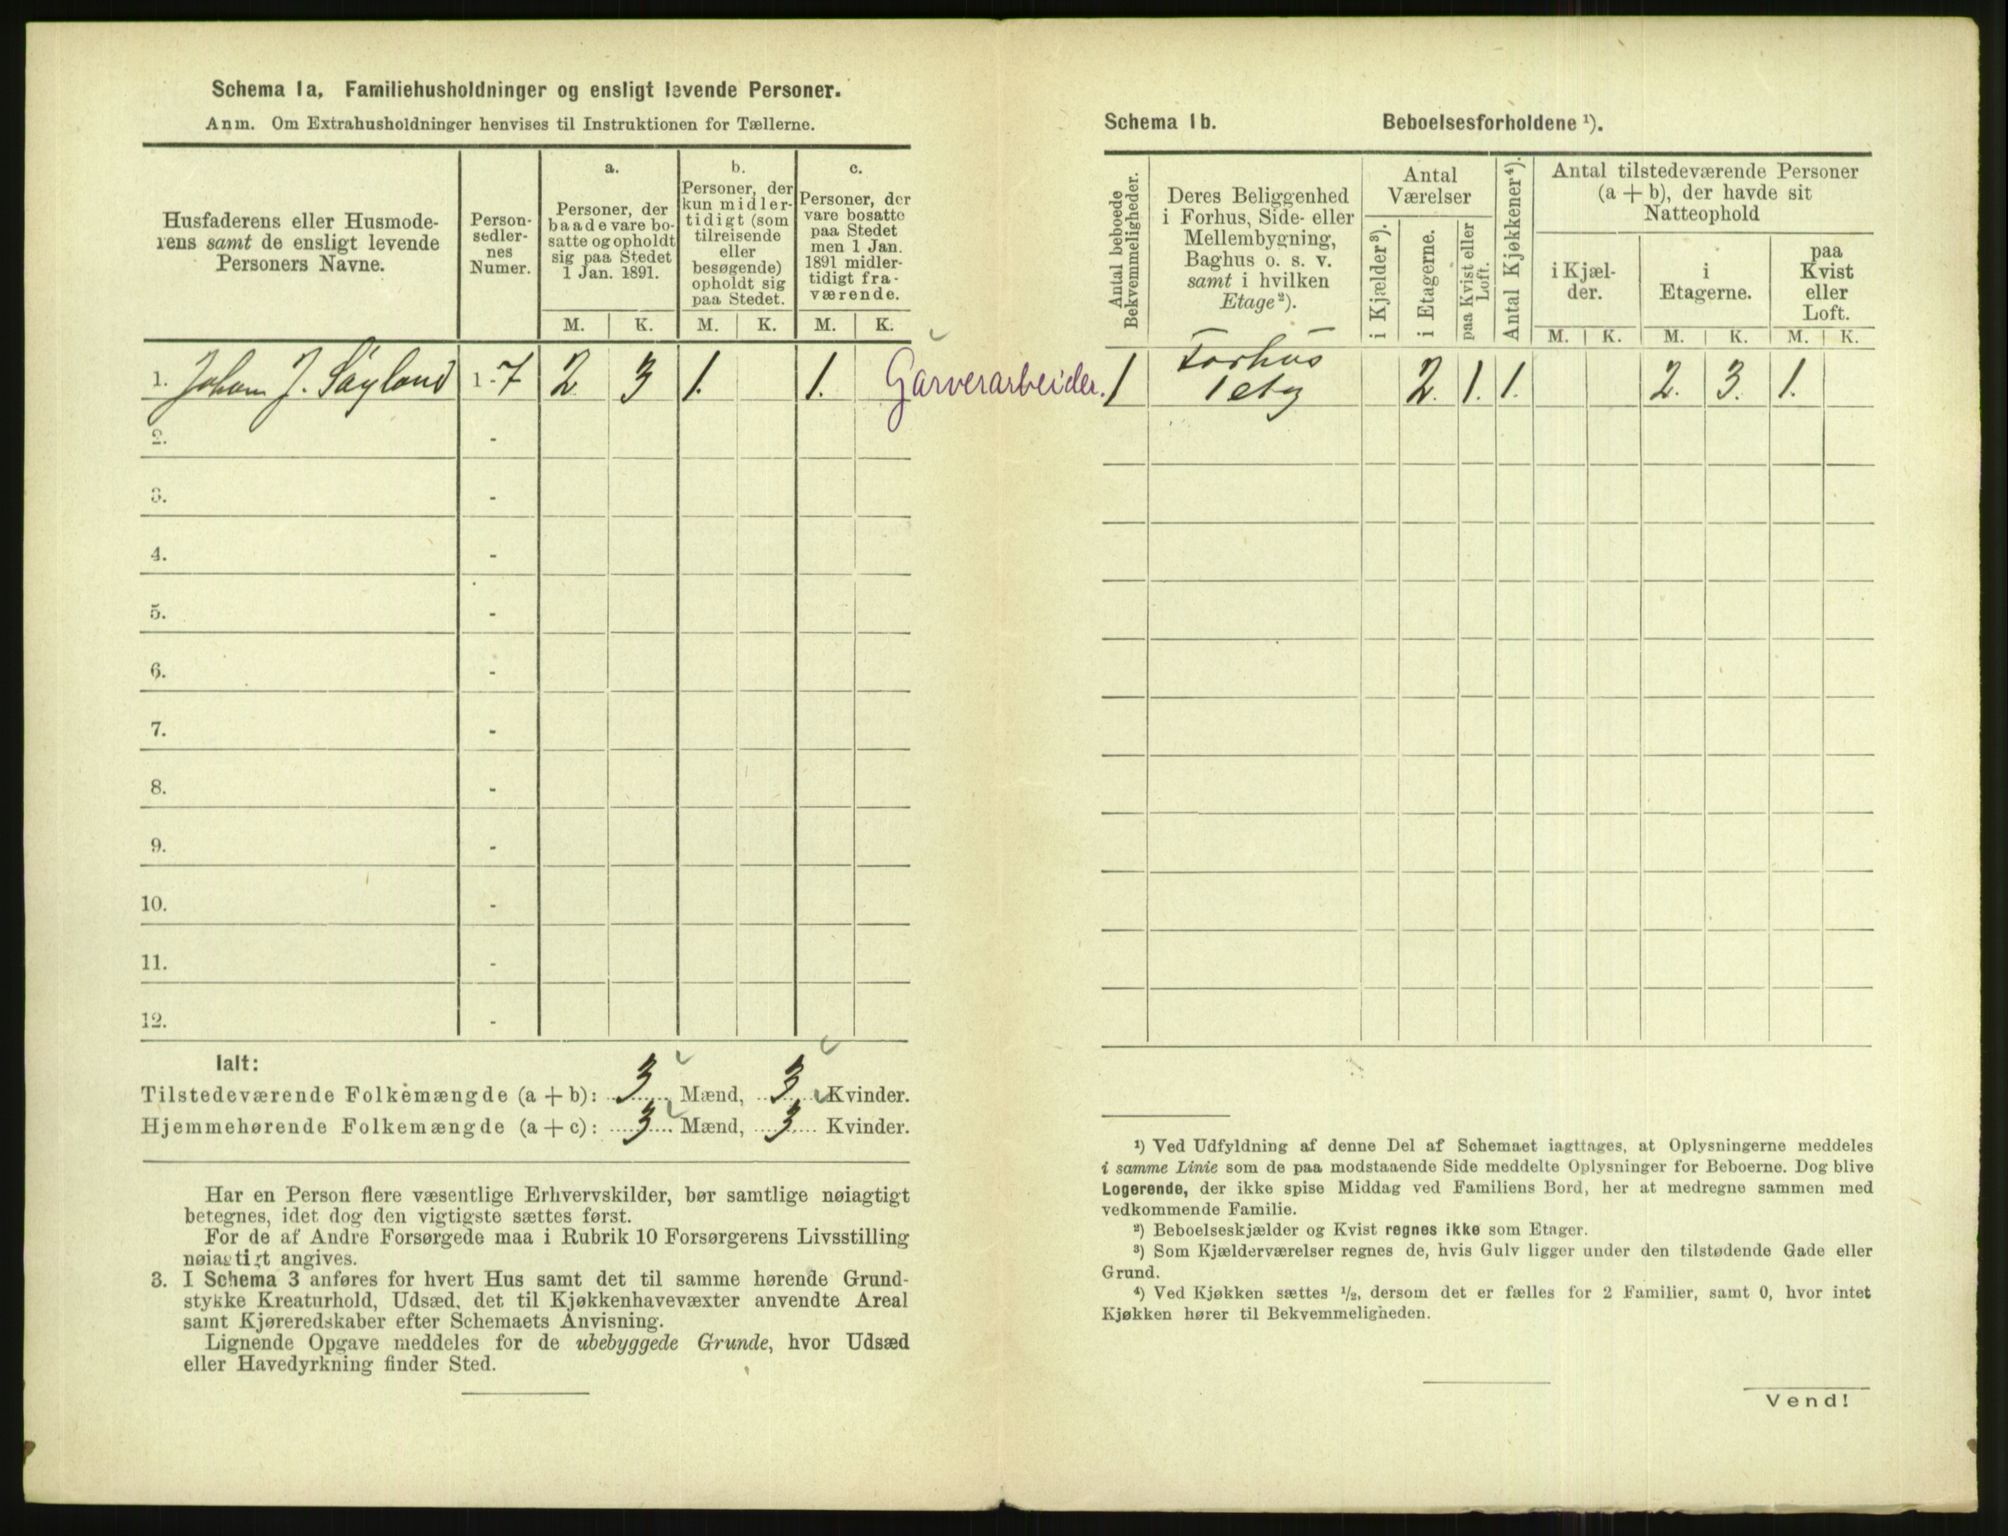 Schema 1a. Familiehusholdninger og ensligt levende Personer.
Anm. Om Extrahusholdninger henvises til Instruktionen for Tællerne.
Husfaderens eller Husmode-
rens samt de ensligt levende
Personers Navne.
Person-
sedler-
nes
Numer.
a.
Personer, der
baade vare bo-
satte og opholdt
sig paa Stedet
1 Jan. 1891.
b.
Personer, der
kun midler-
tidigt (som
tilreisende
eller
besøgende)
opholdt sig
paa Stedet.
c.
Personer, der
vare bosatte
paa Stedet
men 1 Jan.
1891 midler-
tidigt fra-
værende.
M. K. M. K. M. K.
1. Johan J. Søyland 1-7 2 3 1. 1. Garverarbeider.
2. -
3. -
4. -
5. -
6. -
7. -
8. -
9. -
10. -
11. -
12. -
Ialt:
Tilstedeværende Folkemængde (a + b): 3 Mænd, 3 Kvinder.
Hjemmehørende Folkemængde (a + c): 3 Mænd, 3 Kvinder.
Har en Person flere væsentlige Erhvervskilder, bør samtlige nøiagtigt
betegnes, idet dog den vigtigste sættes først.
For de af Andre Forsørgede maa i Rubrik 10 Forsørgerens Livsstilling
nøiagtigt angives.
3. I Schema 3 anføres for hvert Hus samt det til samme hørende Grund-
stykke Kreaturhold, Udsæd, det til Kjøkkenhavevæxter anvendte Areal
samt Kjøreredskaber efter Schemaets Anvisning.
Lignende Opgave meddeles for de ubebyggede Grunde, hvor Udsæd
eller Havedyrkning finder Sted.
Schema 1b. Beboelsesforholdene ¹).
Antal beboede
Bekvemmeligheder.
Deres Beliggenhed
i Forhus, Side- eller
Mellembygning,
Baghus o. s. v.
samt i hvilken
Etage²).
Antal
Værelser
i Kjælder³).
i Etagerne.
paa Kvist eller
Loft.
Antal Kjøkkener⁴).
Antal tilstedeværende Personer
(a + b), der havde sit
Natteophold
i Kjæl-
der.
i
Etagerne.
paa
Kvist
eller
Loft.
M. K. M. K. M. K.
1 Forhus
1 etg 2. 1. 1. 2. 3. 1.
¹) Ved Udfyldning af denne Del af Schemaet iagttages, at Oplysningerne meddeles
i samme Linie som de paa modstaaende Side meddelte Oplysninger for Beboerne. Dog blive
Logerende, der ikke spise Middag ved Familiens Bord, her at medregne sammen med
vedkommende Familie.
²) Beboelseskjælder og Kvist regnes ikke som Etager.
³) Som Kjælderværelser regnes de, hvis Gulv ligger under den tilstødende Gade eller
Grund.
⁴) Ved Kjøkken sættes ½, dersom det er fælles for 2 Familier, samt 0, hvor intet
Kjøkken hører til Bekvemmeligheden.
Vend!